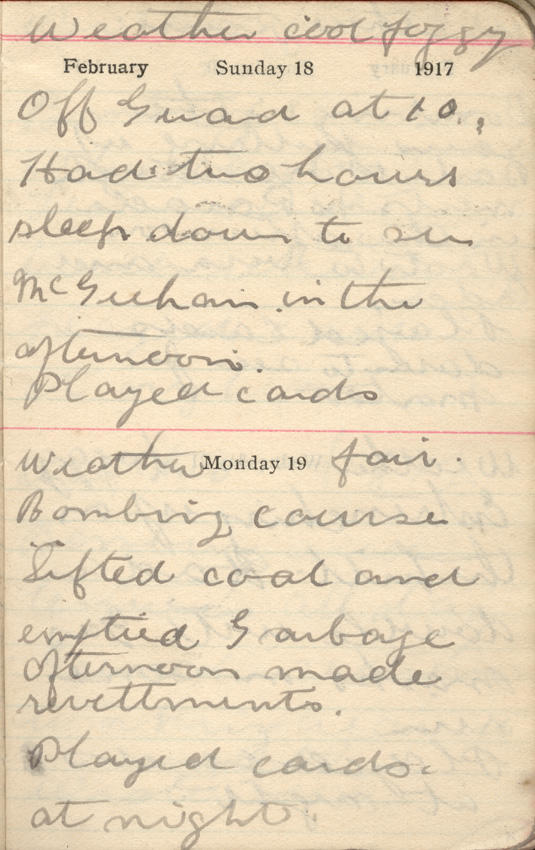 Weather cool foggy
February Sunday 18 1917
Off Guard at 10.
Had two hours
sleep down to see
McGeehan in the
afternoon.
Played cards
Weather Monday 19 fair.
Bombing course
Sifted coal and
emptied Garbage
afternoon made
revettments.
Played cards.
at night.